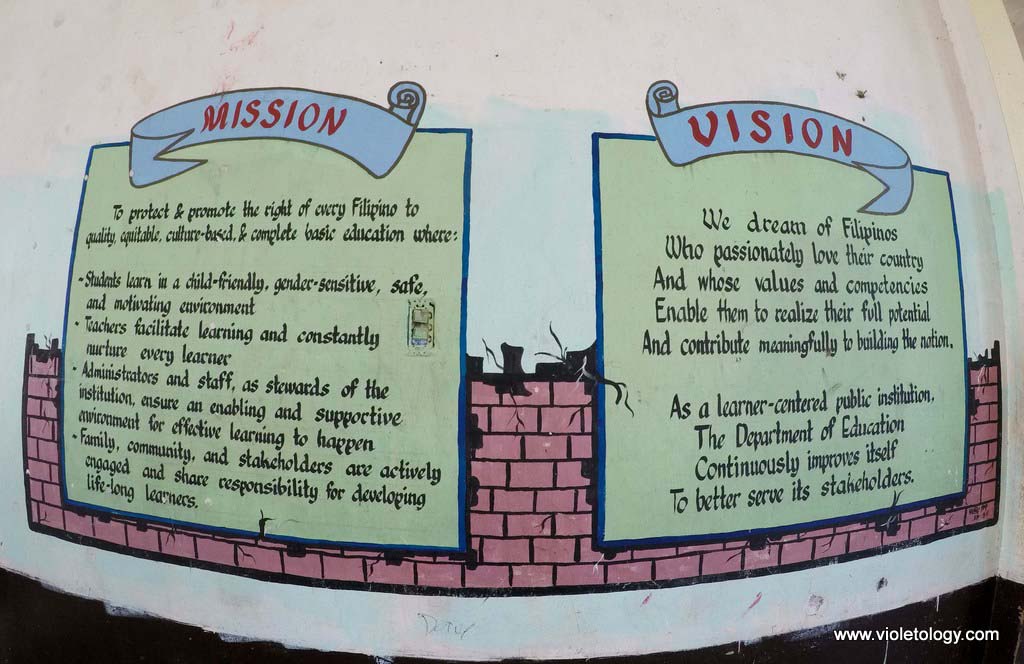 MISSION
To protect & promote the right of every Filipino to
quality, equitable, culture-based, & complete basic education where:
- Students learn in a child-friendly, gender-sensitive, safe,
and motivating environment
- Teachers facilitate learning and constantly
nurture every learner
- Administrators and staff, as stewards of the
institution, ensure an enabling and supportive
environment for effective learning to happen
- Family, community, and stakeholders are actively
engaged and share responsibility for developing
life-long learners.
VISION
We dream of Filipinos
Who passionately love their country
And whose values and competencies
Enable them to realize their full potential
And contribute meaningfully to building the nation.
As a learner-centered public institution,
The Department of Education
Continuously improves itself
To better serve its stakeholders.
www.violetology.com